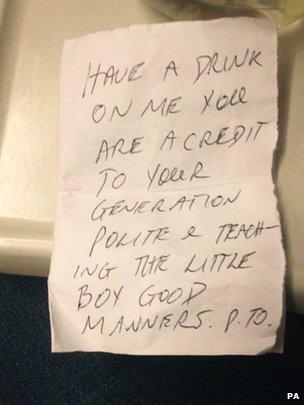 HAVE A DRINK
ON ME YOU
ARE A CREDIT
TO YOUR
GENERATION
POLITE & TEACH-
ING THE LITTLE
BOY GOOD
MANNERS. P.TO.
PA